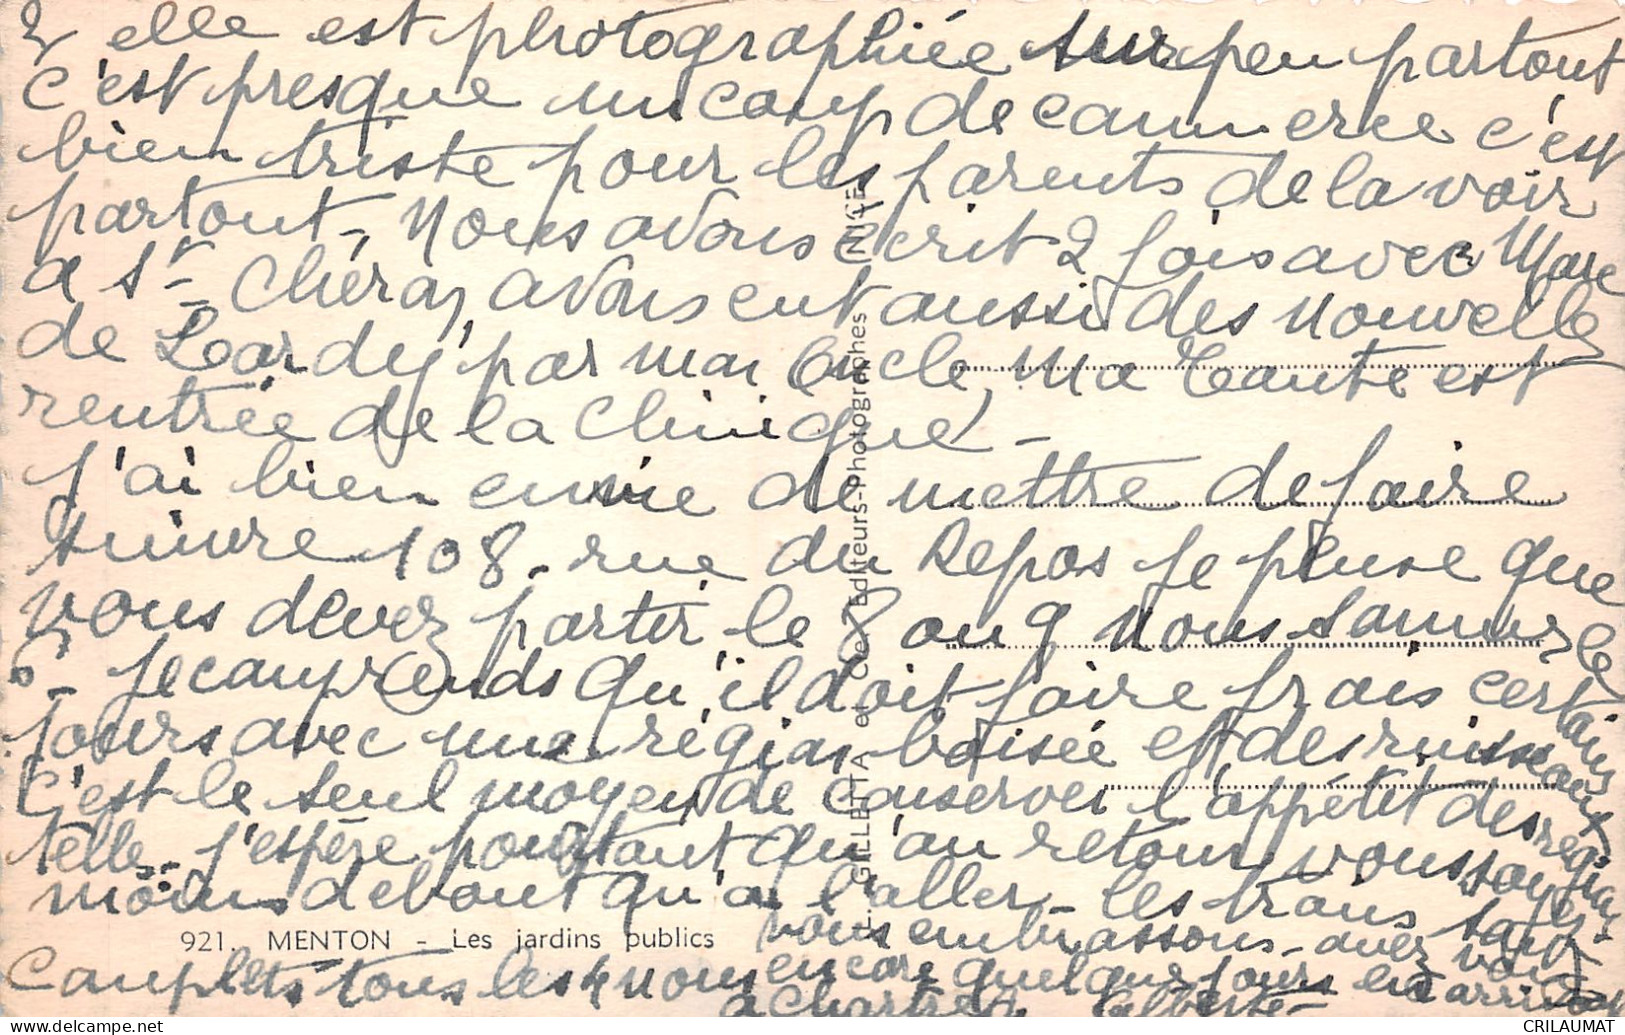 elle est photographiée sur peu partout
c'est presque un coup de commerce c'est
bien triste pour les parents de la voir
partout, Nous avons écrit 2 fois avec Marc
a St Chéron, avons eut aussi des nouvelles
de Lardy par mon Oncle, Ma Tante est
rentrée de la Clinique, -
J'ai bien envie de mettre de faire
suivre 108 - rue du Repos Je pense que
vous devez partir le 8 ou 9 Nous sommes le
5 - Je comprends qu'il doit faire frais certains
jours avec une région boisée et des ruisseaux
C'est le seul moyen de conserver l'appétit des régions
telle - j'espère pourtant qu'au retour vous soyez
moins debout qu'a l'aller - les trains sont
complets tous les 4 nous vous embrassons - avez vous
encore quelques jours en arrivant
a Chartres Alberte -
921. MENTON - Les jardins publics
GILLETTA et Cie, Editeurs-Photographes - NICE
CRILAUMAT